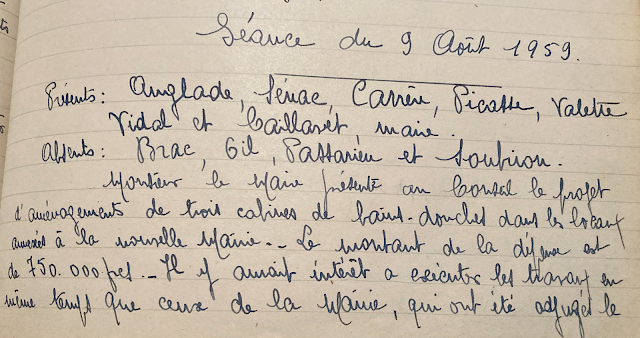 Séance du 9 Août 1959.
Présents: Anglade, Sénac, Carrère, Picasse, Valette
Vidal et Caillavet, maire.
Absents: Brac, Gil, Passarieu et Soubiron.
Monsieur le Maire présente au Conseil le projet
d'aménagements de trois cabines de bains-douches dans les locaux
annexés à la nouvelle Mairie.- Le montant de la dépense est
de 750.000 frcs.- Il y aurait intérêt a exécuter les travaux en
même temps que ceux de la Mairie, qui ont été adjugés le